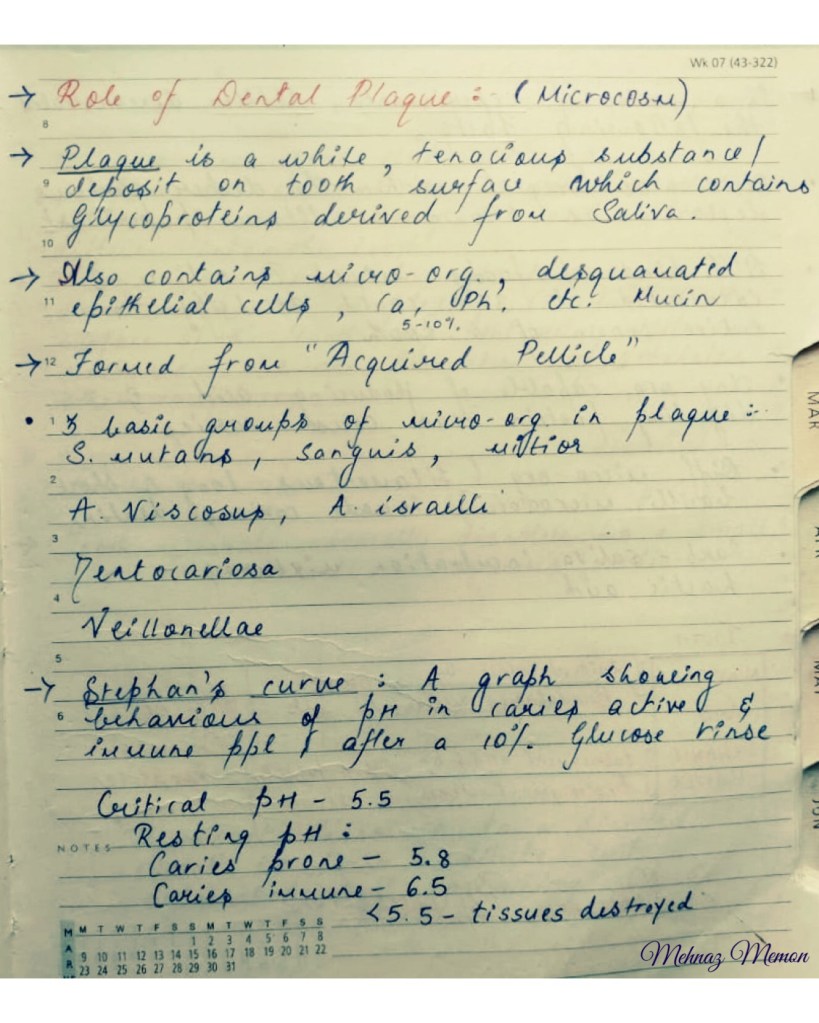 Wk 07 (43-322)
→ Role of Dental Plaque :- (Microcosm)
8
→ Plaque is a white, tenacious substance/
9 deposit on tooth surface which contains
Glycoproteins derived from Saliva.
10
→ Also contains micro-org., desquamated
11 epithelial cells, Ca, Ph. etc. Mucin
5-10%.
→ 12 Formed from "Acquired Pellicle"
• 1 3 basic groups of micro-org in plaque :-
S. mutans, Sanguis, mitior
2
A. Viscosus, A. israelli
3
Dentocariosa
4
Veillonellae
5
→ Stephan's curve : A graph showing
6 behaviour of pH in caries active &
immune ppl after a 10% Glucose rinse
Critical pH - 5.5
Resting pH :
NOTES
Caries prone - 5.8
Caries immune - 6.5
<5.5 - tissues destroyed
M T W T F S S M T W T F S S
1 2 3 4 5 6 7 8
9 10 11 12 13 14 15 16 17 18 19 20 21 22
23 24 25 26 27 28 29 30 31
MAR
MAR
MAY
JUN
Mehnaz Memon